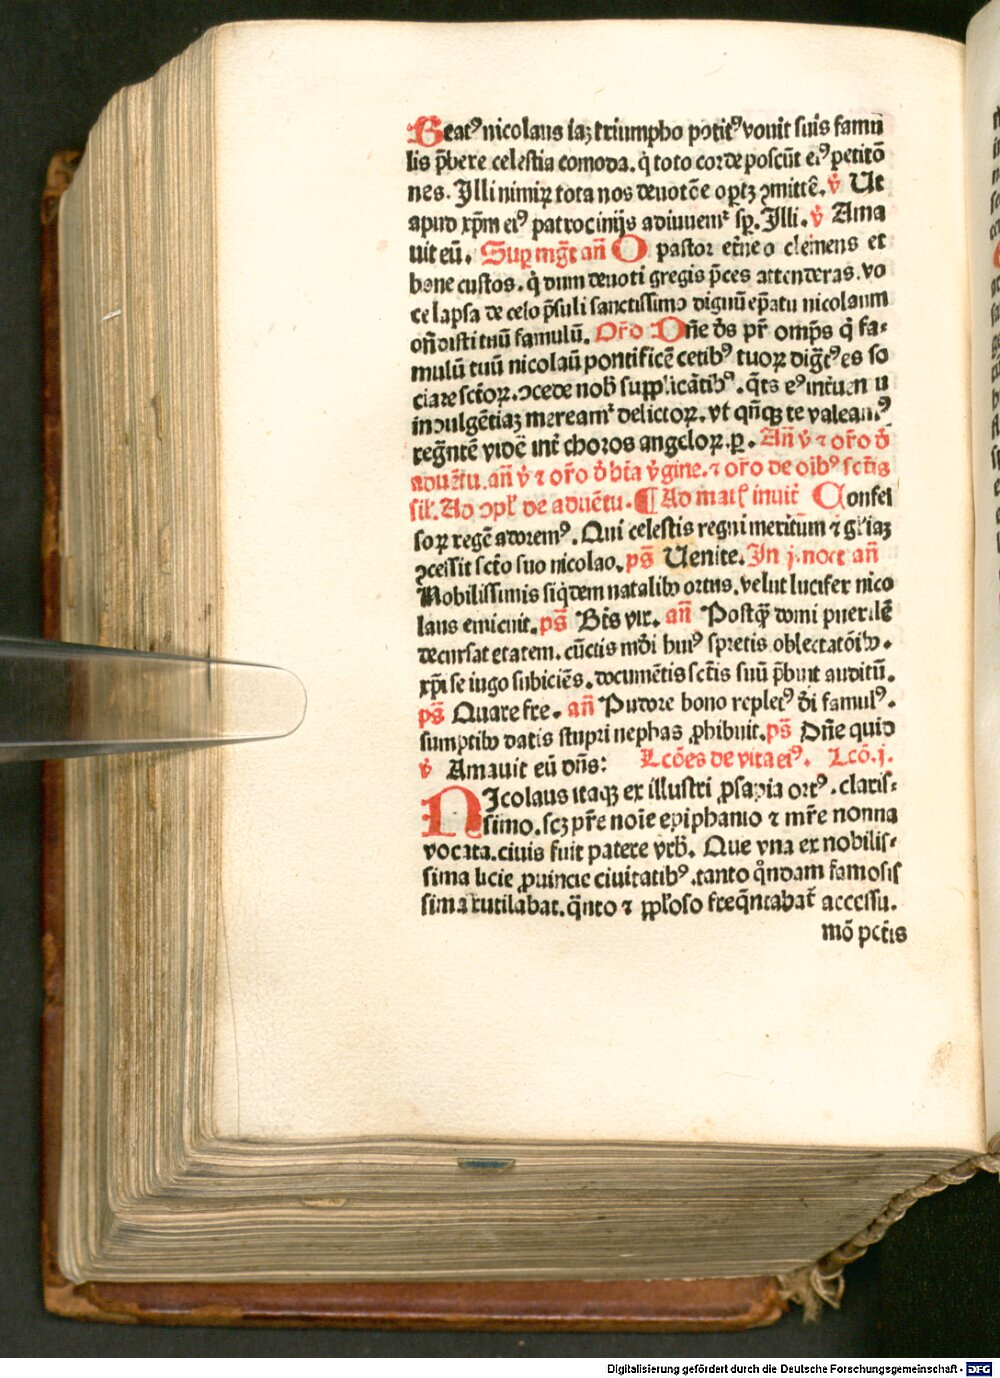 Beatꝰ nicolaus iaꝫ triumpho potitꝰ nouit suis famu
lis p̄bere celestia comoda. q̇ toto corde poscūt eiꝰ petitō
nes. Illi nimiꝝ tota nos deuotōe oꝑtꝫ ꝯmittē. v̇ Ut
apud xp̄m eiꝰ patrocinijs adiuuemᷣ sꝑ. Illi. v̇ Ama
uit eū. Suꝑ mgᷓt an̄ O pastor etne o clemens et
bone custos. q̇ dum deuoti gregis p̄ces attenderas. vo
ce lapsa de celo p̄suli sanctissimo dignū ep̄atu nicolaum
on̄disti tuū famulū. Or̄o Dn̄e ds̄ pr̄ omp̄s q̇ fa⸗
mulū tuū nicolaū pontificē cetibꝰ tuoꝝ digᷓtꝰ es so
ciare sct̄oꝝ. ꝯcede nob̄ supplicātibꝰ. q̄ts eꝰ intuen u
indulgētiaꝫ mereamᷣ delictoꝝ. vt qn̄qꝫ te valeamꝰ
regn̄tē videē int̄ choros angeloꝝ. ꝑ. An̄ v̇ ⁊ or̄o ð
aduētu. an̄ v̇ ⁊ or̄o ð bt̄a v̇gine. ⁊ or̄o de oib᷒ sct̄is
sil̄. Ad ꝯpl̄ de aduētu. ¶ Ad mat̄ inuit̄ Confes
soꝝ regē adoremꝰ. Qui celestis regni meritum ⁊ gl̄iaꝫ
ꝯcessit sct̄o suo nicolao. ps̄ Uenite. In j. noct an̄
Nobilissimis siq̇dem natalibꝰ ortus. velut lucifer nico
laus emicuit. ps̄ Bt̄s vir. an̄ Postqꝫ̄ domi puerilē
decursat etatem. cūctis mūdi huiꝰ spretis oblectatōibꝰ.
xp̄i se iugo subiciēs. documētis sct̄is suū p̄buit auditū.
ps̄ Quare fre. an̄ Pudore bono repletꝰ di famulꝰ.
sumptibꝰ datis stupri nephas ꝓhibuit. ps̄ Dn̄e quid
v̇ Amauit eū dn̄s: Lcōes de vita eiꝰ. Lcō. j.
NIcolaus itaqꝫ ex illustri ꝓsapia ortꝰ. claris⸗
simo. scꝫ pr̄e noīe epiphanio ⁊ mr̄e nonna
vocata. ciuis fuit patere vrb̄. Que vna ex nobilis⸗
sima licie ꝓuincie ciuitatibꝰ. tanto qͦndam famosis
sima rutilabat. qͣnto ⁊ ppl̄oso freqn̄tabat̄ accessu.
mō pct̄is
Digitalisierung gefördert durch die Deutsche Forschungsgemeinschaft - DFG